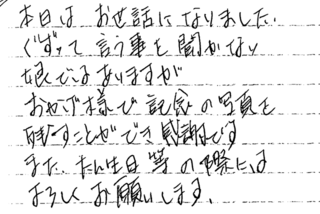 本日は お世話になりました.
ぐずって 言う事を聞かない
娘ではありますが
おかげ様で 記念の写真を
残すことができ 感謝です
また、たん生日 等の際には
よろしくお願いします.